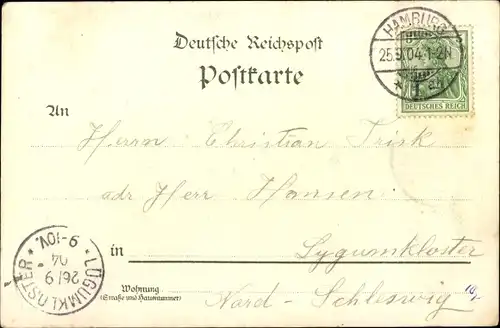 Deutsche Reichspost
Postkarte
HAMBURG
25.9.04.1-2N
* 1
DEUTSCHES REICH
An
Herrn Christian Frisk
adr Herr Hansen
in Lygumkloster
Wohnung
(Straße und Hausnummer)
Nord-Schleswig
* LÜGUMKLOSTER *
26/9
04
9-10V.